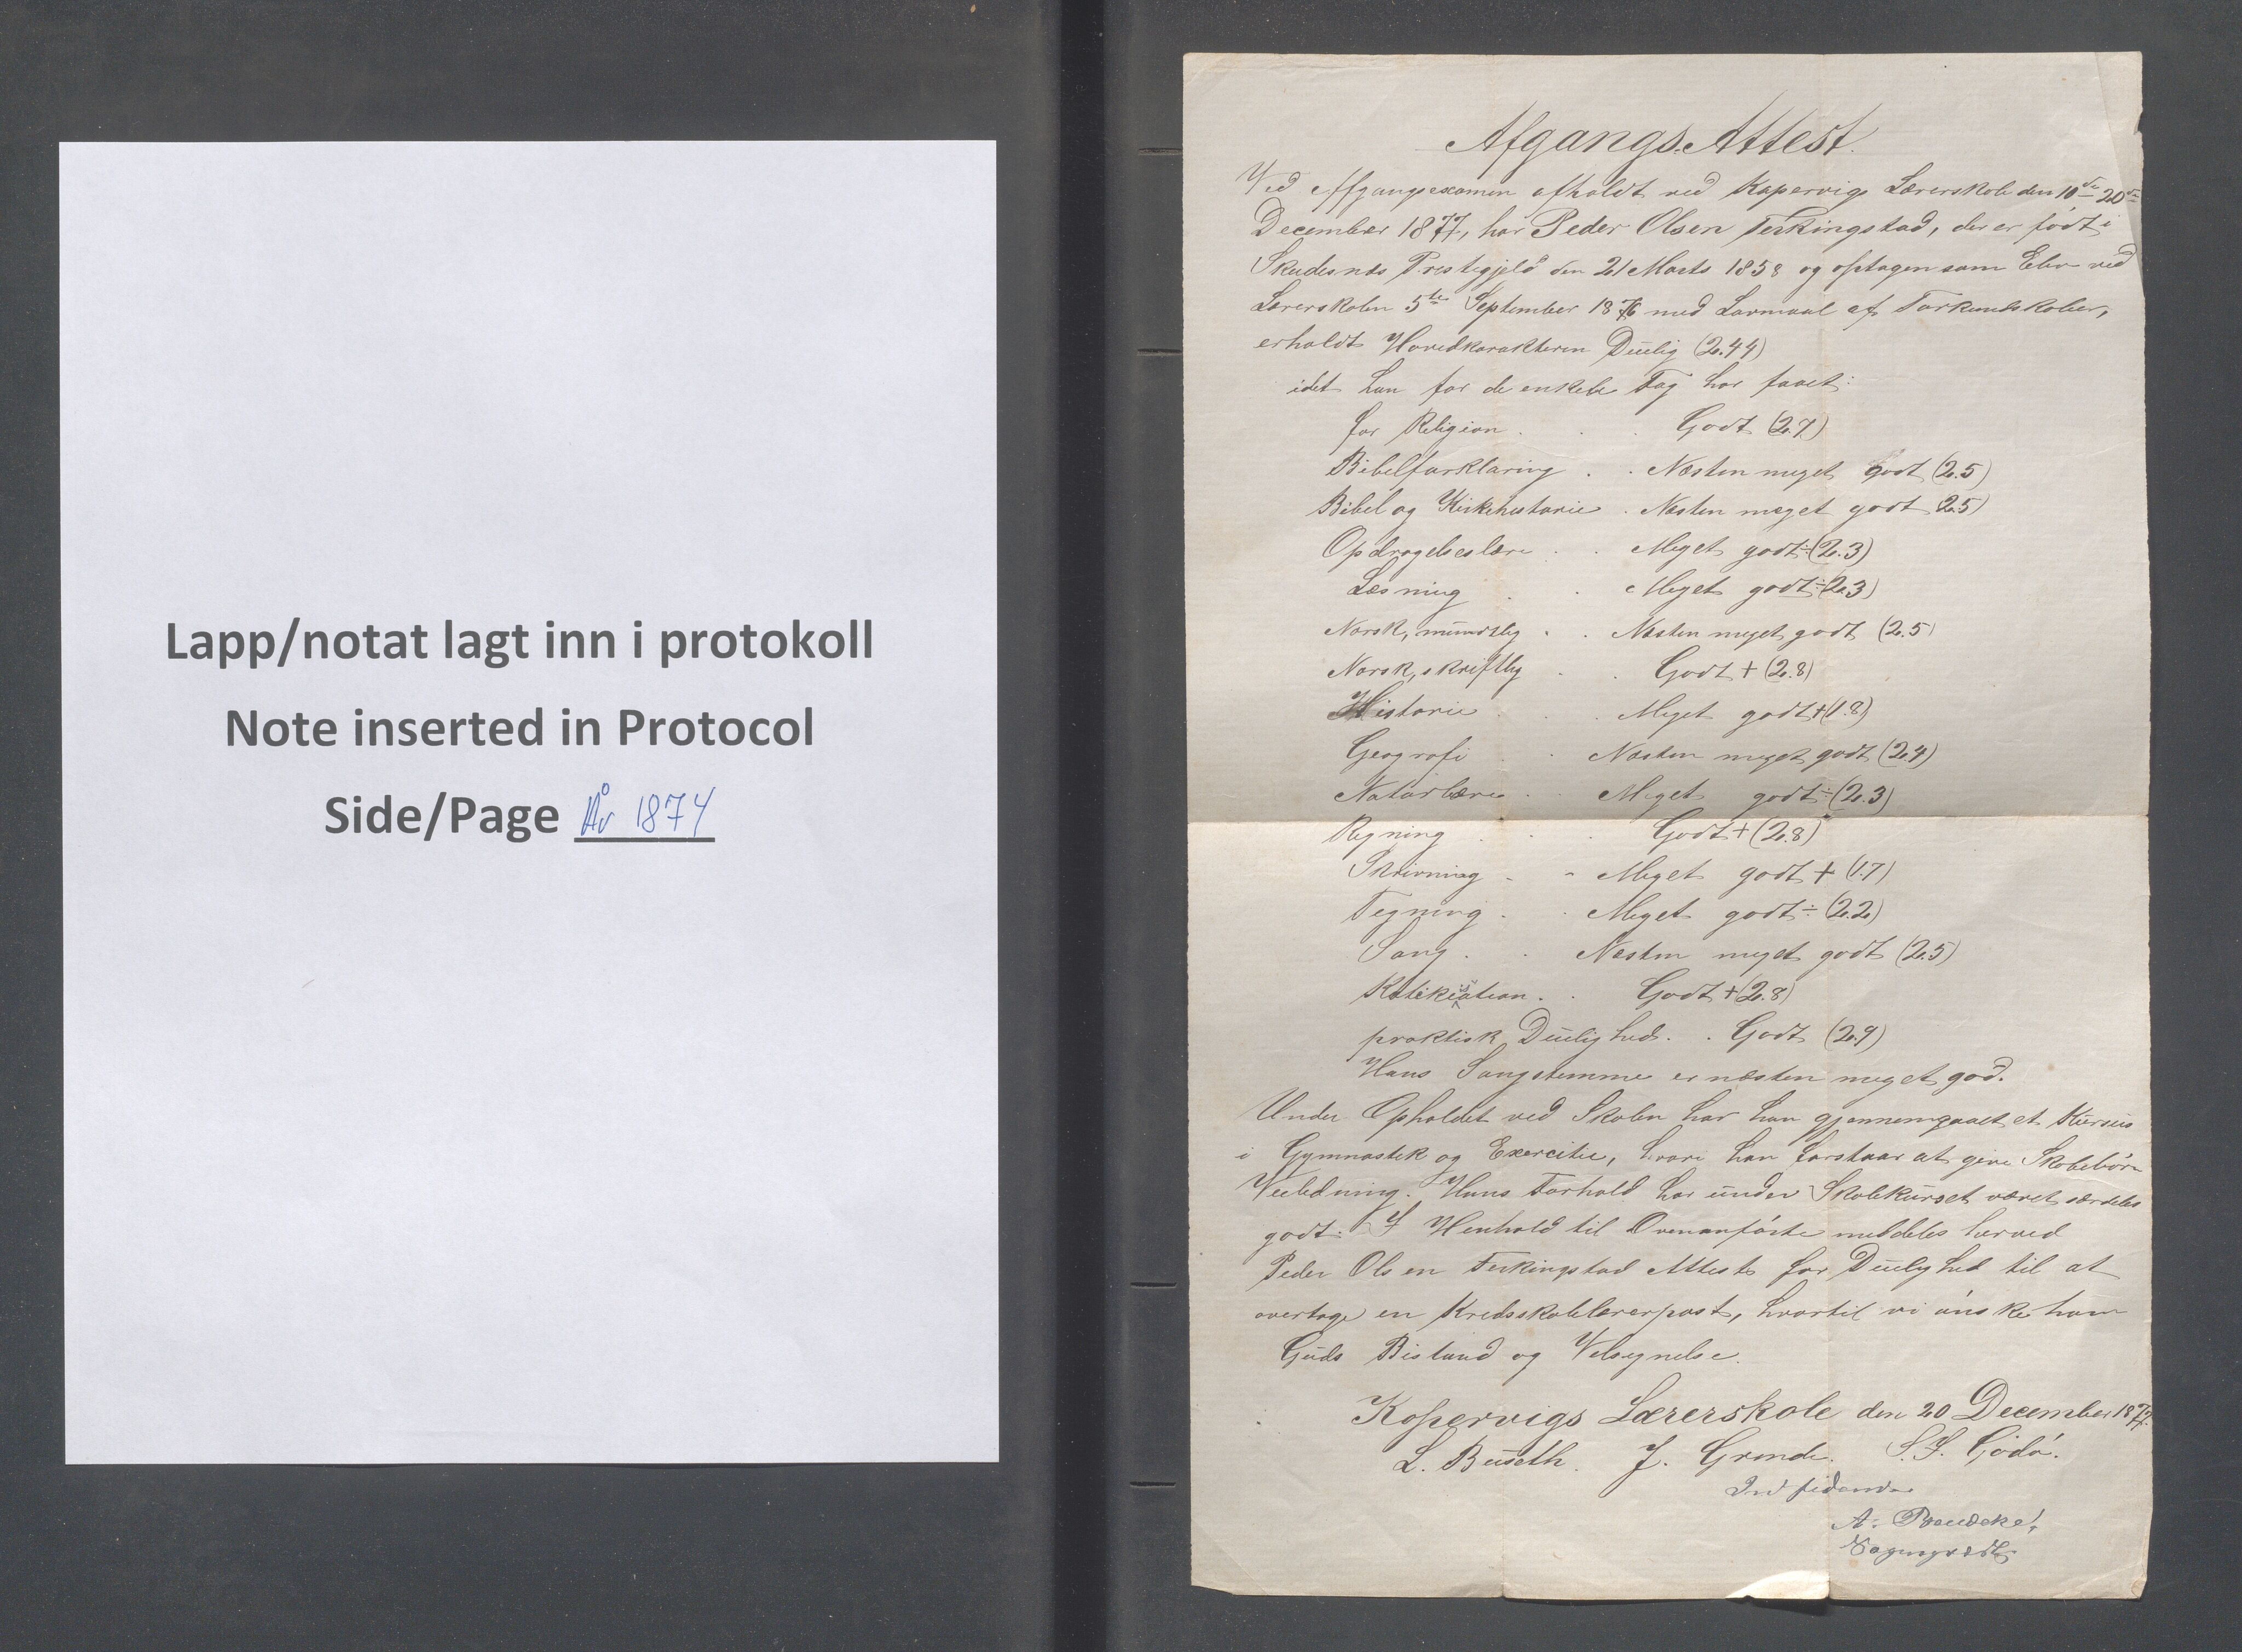 Lapp/notat lagt inn i protokoll
Note inserted in Protocol
Side/Page År 1874
Afgangs-Attest.
Ved Afgangsexamen afholdt ved Kopervigs Lærerskole den 10de–20de
December 1877, har Peder Olsen Ferkingstad, der er født i
Skudesnæs Prestegjeld den 21 Marts 1858 og optagen som Elev ved
Lærerskolen 5te September 1876 med Lavmaal af Forkundskaber,
erholdt Hovedkarakteren Duelig (2.44)
idet han for de enkelte Fag har faaet:
for Religion . . . Godt (2.7)
Bibelforklaring . . Næsten meget godt (2.5)
Bibel og Kirkehistorie . Næsten meget godt (2.5)
Opdragelseslære . . Meget godt÷(2.3)
Læsning . . Meget godt÷(2.3)
Norsk, mundtlig . . Næsten meget godt (2.5)
Norsk, skriftlig . . Godt + (2.8)
Historie . . . Meget godt+(1.8)
Geografi . . Næsten meget godt (2.4)
Naturlære . . Meget godt÷(2.3)
Regning . . . Godt+(2.8)
Skrivning . . Meget godt + (1.7)
Tegning . . Meget godt÷ (2.2)
Sang . . Næsten meget godt (2.5)
Katekisation . . Godt +(2.8)
praktisk Duelighed . . Godt (2.9)
Hans Sangstemme er næsten meget god.
Under Opholdet ved Skolen har han gjennemgaaet et Kursus
i Gymnastik og Exercitie, hvori han forstaar at give Skolebørn
Veiledning. Hans Forhold har under Skolekurset været særdeles
godt. I Henhold til Ovenanførte meddeles herved
Peder Olsen Ferkingstad Attest for Duelighed til at
overtage en Kredsskolelærerpost, hvortil vi ønske ham
Guds Bistand og Velsignelse.
Kopervigs Lærerskole den 20 December 1877.
L. Buseth. J. Grinde. S. S. Gjödö.